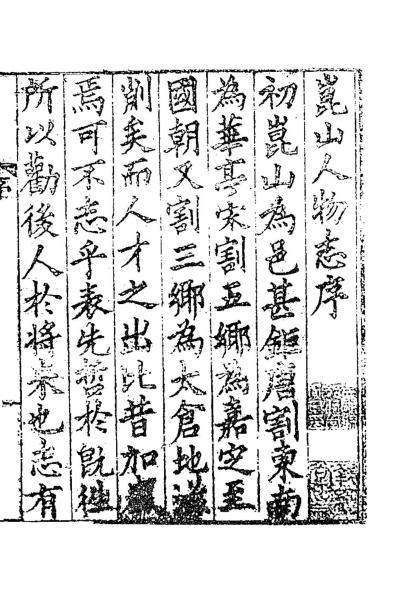 崑山人物志序
初崑山為邑甚鉅唐割東南
為華亭宋割五鄉為嘉定至
國朝又割三鄉為太倉地滋
削矣而人才之出比昔加
焉可不志乎表先哲於既徃
所以勸後人於將来也志有